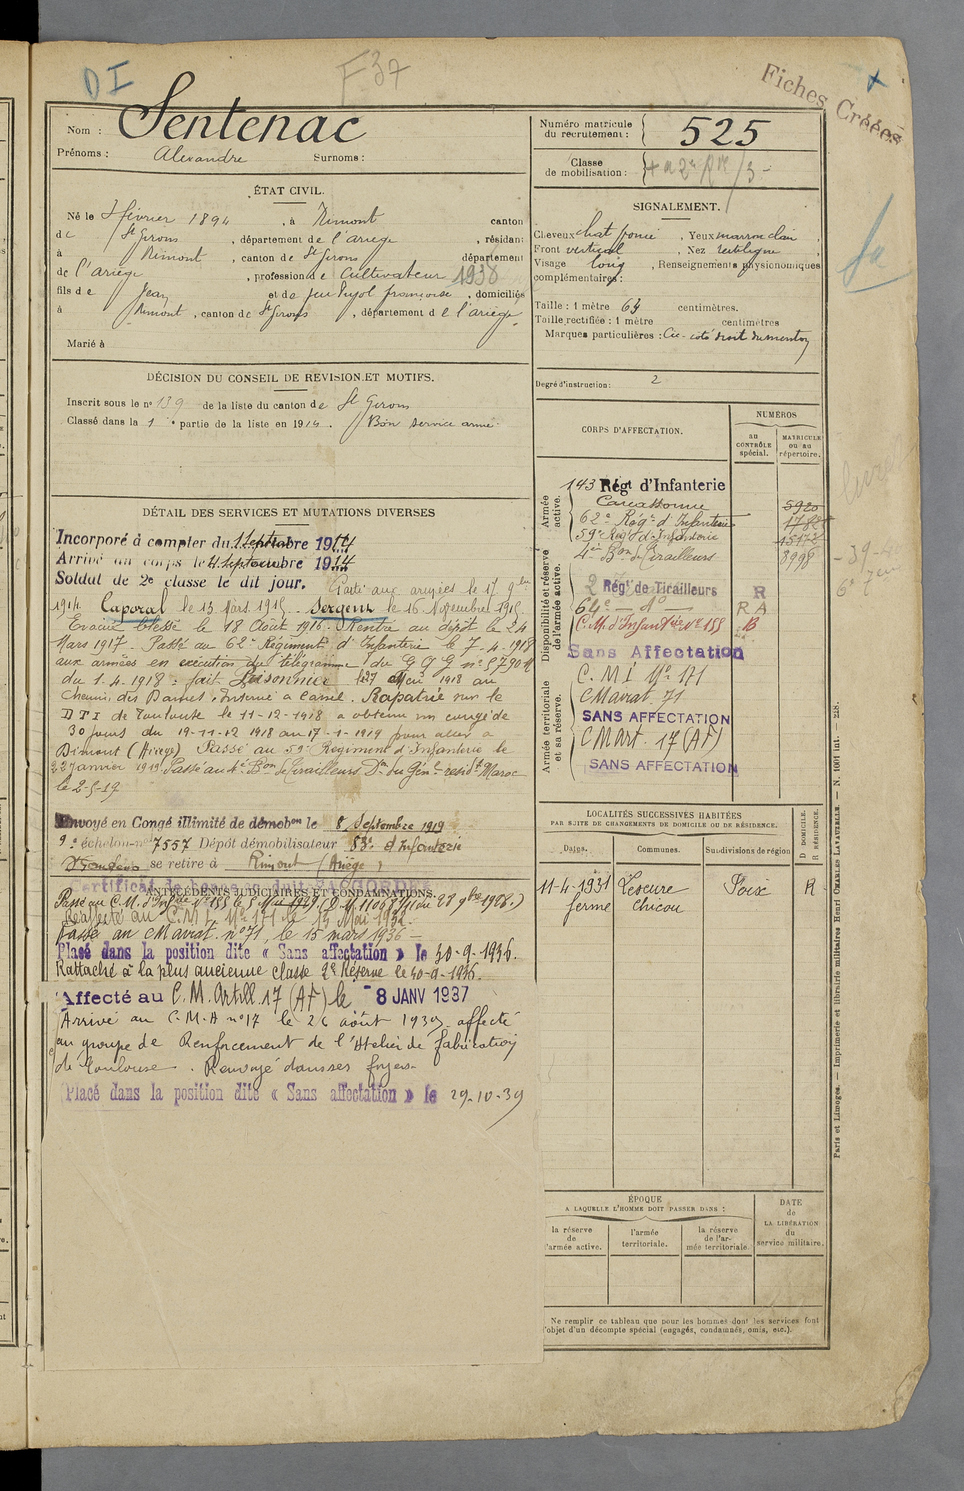 D I
F 37
Fiches Créées
Nom : Sentenac
Prénoms : Alexandre Surnoms :
Numéro matricule du recrutement : 525
Classe de mobilisation :
ÉTAT CIVIL.
Né le février 1894, à Rimont canton
de St Girons, département de l'ariège, résidant
à Rimont, canton de St Girons département
de l'ariège, profession de Cultivateur 1938
fils de Jean et de feu Pujol françoise, domiciliés
à Rimont, canton de St Girons, département de l'ariège
Marié à
SIGNALEMENT.
Cheveux chat foncé, Yeux marron clair,
Front vertical, Nez rectiligne,
Visage long, Renseignements physionomiques
complémentaires :
Taille : 1 mètre 64 centimètres.
Taille rectifiée : 1 mètre centimètres
Marques particulières : Cic. coté droit du menton
Degré d'instruction : 2
DÉCISION DU CONSEIL DE REVISION ET MOTIFS.
Inscrit sous le no 139 de la liste du canton de St Girons
Classé dans la 1e partie de la liste en 1914. Bon service armé
DÉTAIL DES SERVICES ET MUTATIONS DIVERSES
Incorporé à compter du 1 Septembre 1914
Arrivé au corps le 4 Septembre 1914
Soldat de 2e classe le dit jour. Parti aux armées le 17 9bre
1914. Caporal le 13 Mars 1915. Sergent le 16 Novembre 1915.
Evacué blessé le 18 Août 1916. Rentré au dépôt le 24
Mars 1917. Passé au 62e Régiment d'Infanterie le 7-4-1918
aux armées en exécution du télégramme du G Q G no 5790 M
du 1.4.1918. fait Prisonnier le 27 Mai 1918 au
Chemin des Dames. Interné a Cassel. Rapatrié sur le
D T I de Toulouse le 11-12-1918 a obtenu un congé de
30 jours du 19-11-12 1918 au 17-1-1919 pour aller a
Rimont (Ariège) Passé au 59e Régiment d'Infanterie le
22 Janvier 1919 Passé au 4e Bon de Tirailleurs Don du Génal résidt Maroc
le 2-5-19
Envoyé en Congé illimité de démobon le 8 Septembre 1919
9e échelon no 7557 Dépôt démobilisateur 83e d'Infanterie
se retire à Rimont (Ariège)
Certificat de bonne conduite ACCORDÉ
ANTÉCÉDENTS JUDICIAIRES ET CONDAMNATIONS.
Passé au C.M. d'Infrie No 155 le 5 Mai 1929 (D.M. 11063 1/11 du 23 9bre 1928.)
Réaffecté au C.M.I No 171 le 15 Mai 1932.
Passé au CMavrat. no 71, le 15 mars 1936
Placé dans la position dite « Sans affectation » le 30-9-1936.
Rattaché à la plus ancienne classe 2e Réserve le 30-9-1936.
Affecté au C.M. Artill. 17 (AF) le 8 JANV 1937
Arrivé au C.M.A no 17 le 26 août 1939 affecté
au groupe de Renforcement de l'Atelier de fabrication
de Toulouse. Renvoyé dans ses foyers.
Placé dans la position dite « Sans affectation » le 29-10-39
CORPS D'AFFECTATION.
NUMÉROS
au CONTRÔLE spécial.
MATRICULE ou au répertoire.
Armée active.
143 Régt d'Infanterie
Carcassonne 5920
62e Régt d'Infanterie 1782
59e Régt d'Infanterie 15177
4e Bon de Tirailleurs 3998
Disponibilité et réserve de l'armée active.
2 Régt de Tirailleurs R
64e — do — R A
C.M. d'Infanterie No 155 B
Sans Affectation
Armée territoriale et sa réserve.
C. M I No 171
CMavrat 71
SANS AFFECTATION
C Mart. 17 (AF)
SANS AFFECTATION
LOCALITÉS SUCCESSIVES HABITÉES
PAR SUITE DE CHANGEMENTS DE DOMICILE OU DE RÉSIDENCE.
D DOMICILE.
R RÉSIDENCE.
Dates. Communes. Subdivisions de région
11-4-1931 Lescure Foix R
ferme Chicou
ÉPOQUE
A LAQUELLE L'HOMME DOIT PASSER DANS :
la réserve de l'armée active.
l'armée territoriale.
la réserve de l'armée territoriale
DATE de LA LIBÉRATION du service militaire.
Ne remplir ce tableau que pour les hommes dont les services font
l'objet d'un décompte spécial (engagés, condamnés, omis, etc.).
Paris et Limoges. — Imprimerie et librairie militaires Henri CHARLES-LAVAUZELLE. — N. 1001 int. — 228.